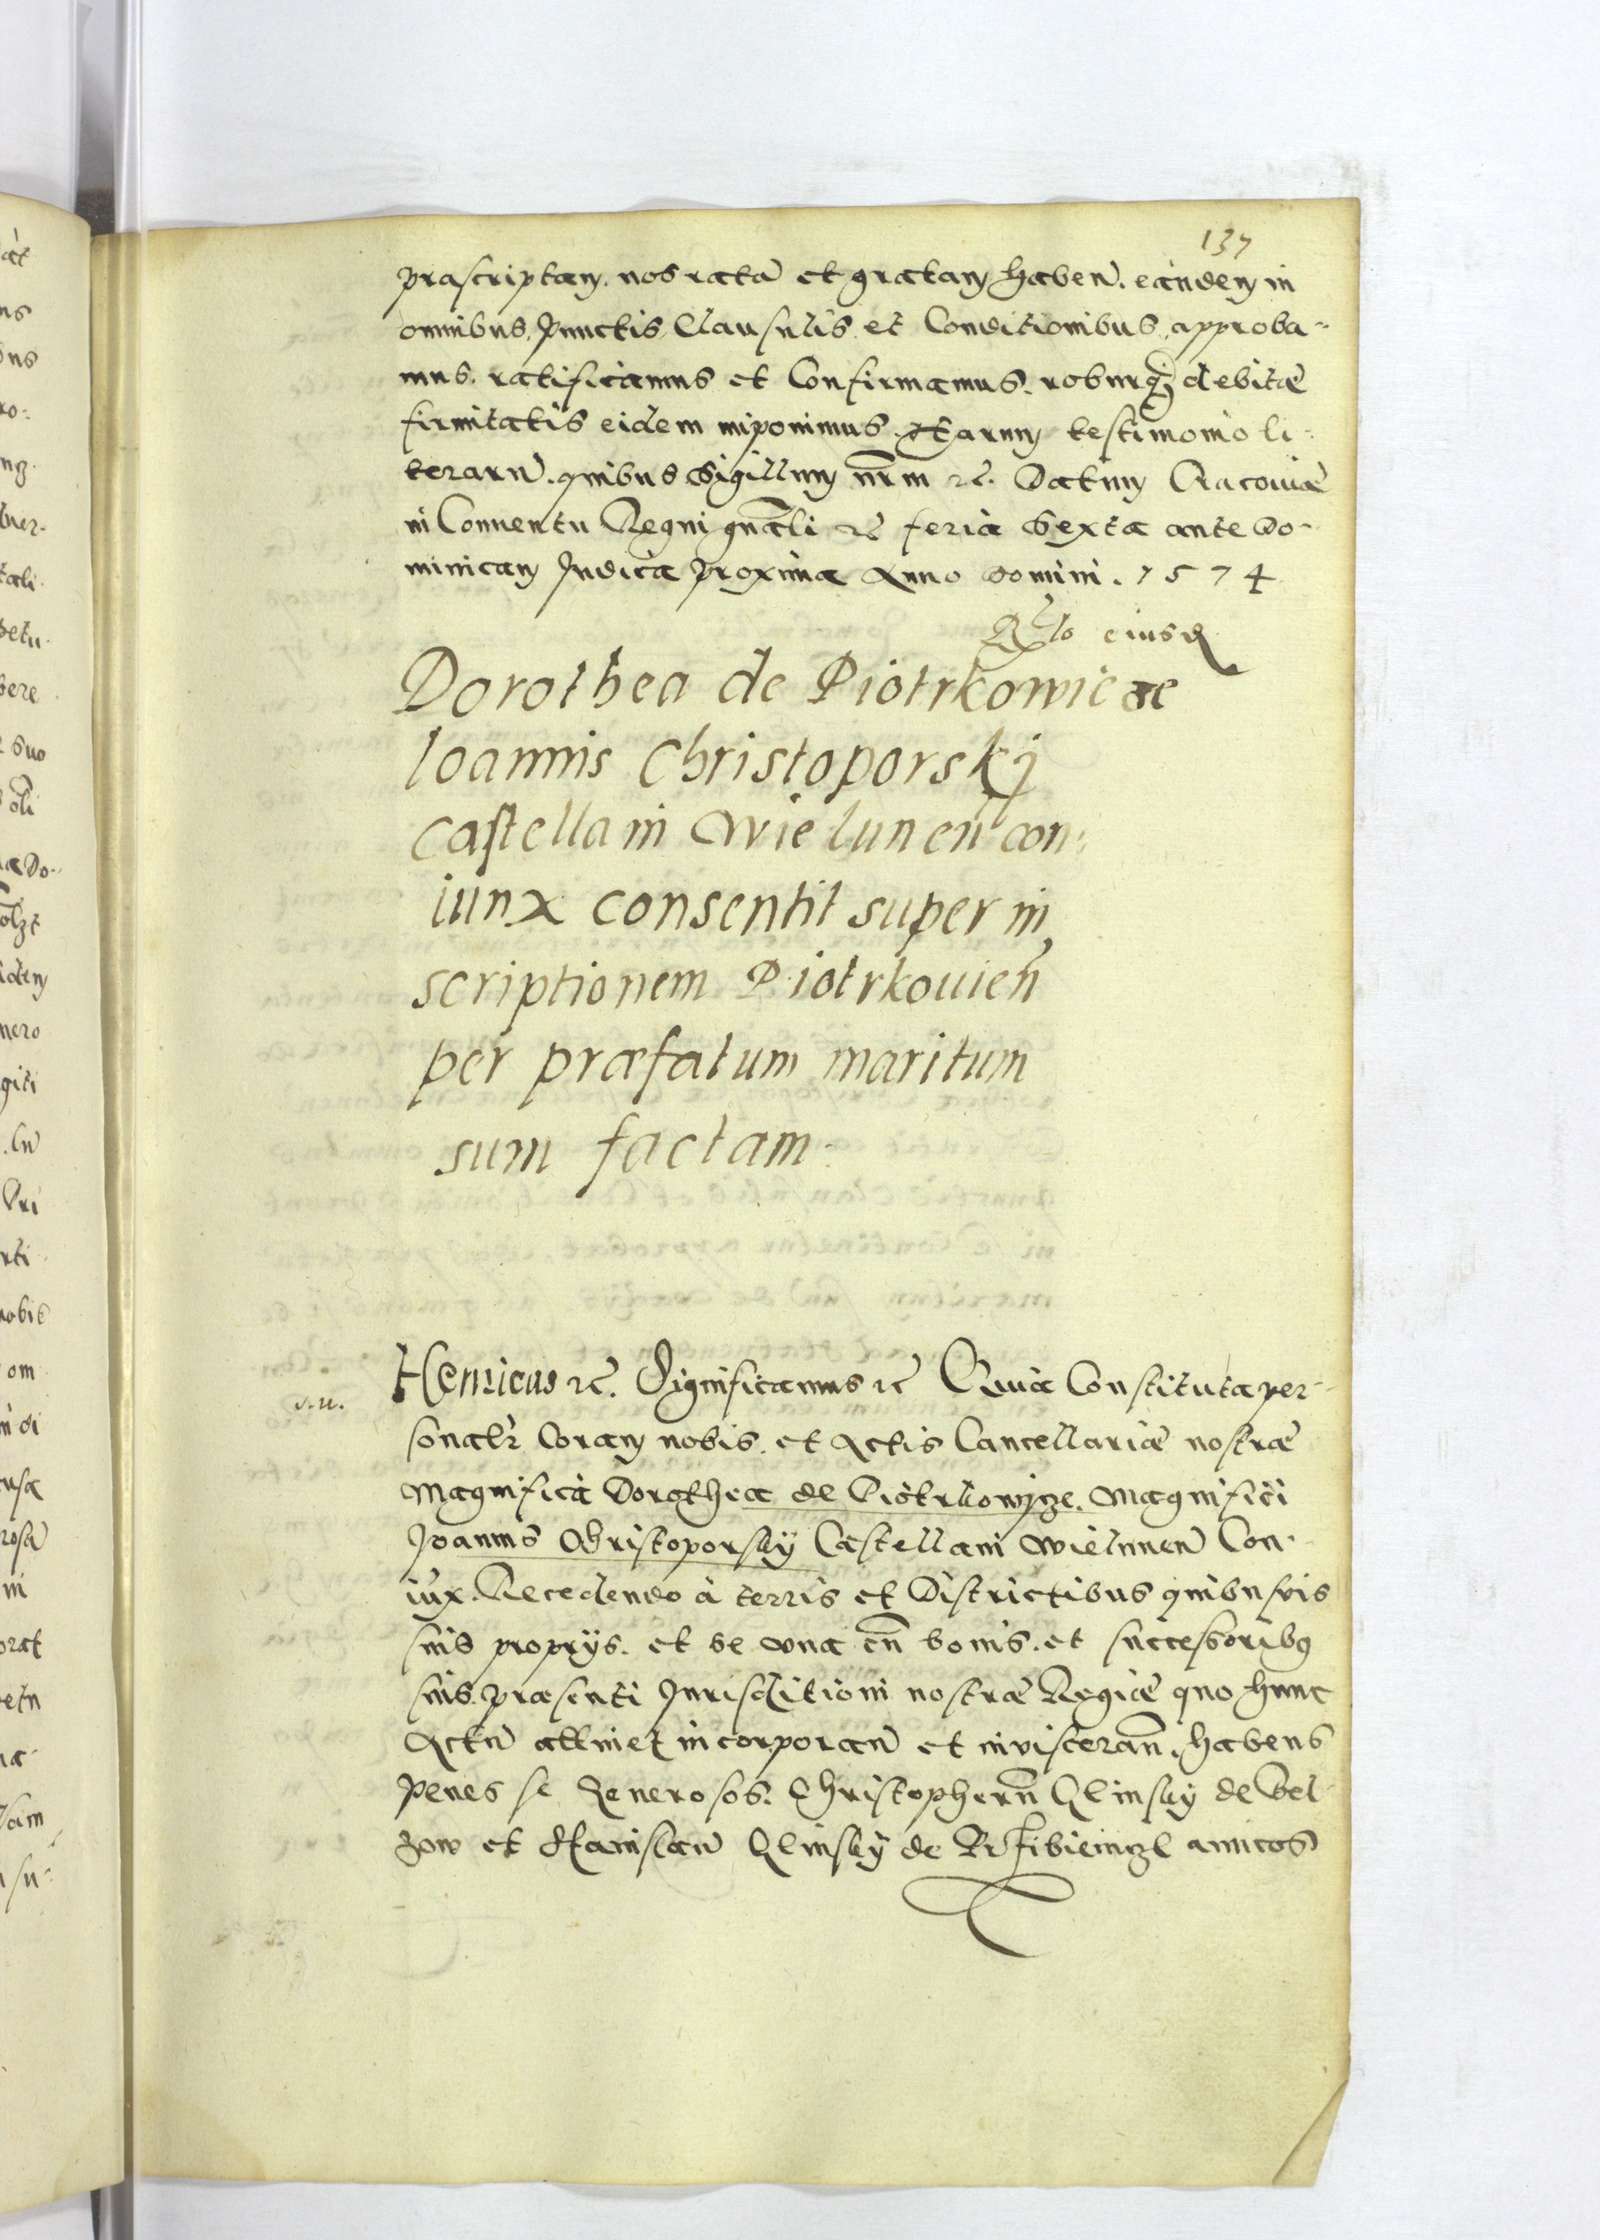 137
præscriptam. nos rata et gratam haben. eandem in
omnibus, punctis, Clausulis et Conditionibus, approba-
mus. ratificamus et Confirmamus. roburq3 debitæ
firmitatis eidem inponimus. Harum testimonio li-
terarū. quibus Sigillum nrm etc. Datum Cracoviæ
in Conventu Regni gnāli etc feria Sexta ante Do-
minicam Judica proxima Anno Domini. 1574
Rlo eiusd
Dorothea de Piotrkowicze
Ioannis Christoporskj
castellani Wielunen con
iunx consentit super in
scriptionem Piotrkouien
per præfatum maritum
suum factam.
Henricus etc. Significamus etc Quia Constituta per-
s.n.
sonalr Coram nobis. et Actis Cancellariæ nostræ
Magnifica Dorothea de Piotrkowycze. Magnifici
Joannis Christoporsky Castellani Wielunen Con-
iux. Recedendo à terris et Districtibus quibusvis
suis proprijs. et se una cū bonis. et successoribus
suis. præsenti Jurisditioni nostræ Regiæ quo hunc
Actū attinet incorporan et inviscerān. habens
penes se Generosos. Christopherū Glinsky de Bel
zow et Stanislaū Glinsky de amicos